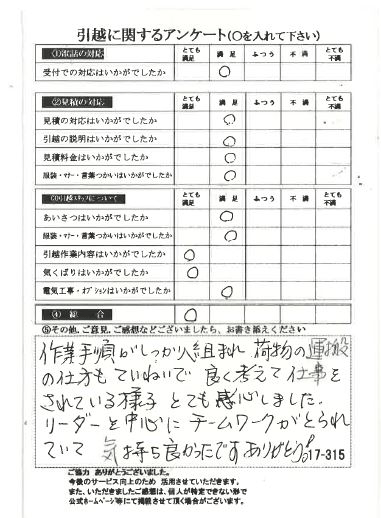 引越に関するアンケート(○を入れて下さい)
①電話の対応 とても満足 満足 ふつう 不満 とても不満
受付での対応はいかがでしたか ○
②見積の対応 とても満足 満足 ふつう 不満 とても不満
見積の対応はいかがでしたか ○
引越の説明はいかがでしたか ○
見積料金はいかがでしたか ○
服装・マナー・言葉つかいはいかがでしたか ○
③引越スタッフについて とても満足 満足 ふつう 不満 とても不満
あいさつはいかがでしたか ○
服装・マナー・言葉つかいはいかがでしたか ○
引越作業内容はいかがでしたか ○
気くばりはいかがでしたか ○
電気工事・オプションはいかがでしたか ○
④総合 ○
⑤その他、ご意見、ご感想などございましたら、お書き添えください
作業手順がしっかり組まれ 荷物の運搬
の仕方もていねいで 良く考えて仕事を
されている様子 とても感心しました。
リーダーを中心にチームワークがとられ
ていて 気持ち良かったです ありがとう。
17-315
ご協力 ありがとうございました。
今後のサービス向上のため 活用させていただきます。
また、いただきましたご感想は、個人が特定できない形で
公式ホームページ等にて掲載させて頂く場合がございます。